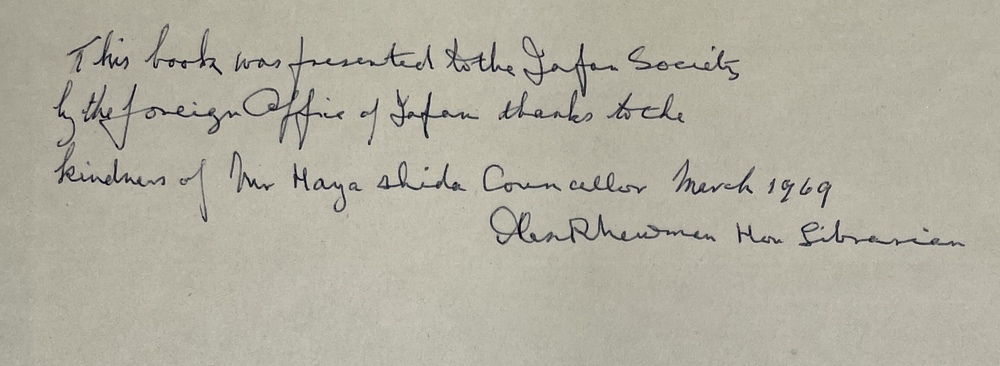 This book was presented to the Japan Society
by the foreign Office of Japan thanks to the
kindness of Mr Haya shida Councellor March 1969
Hon Librarian